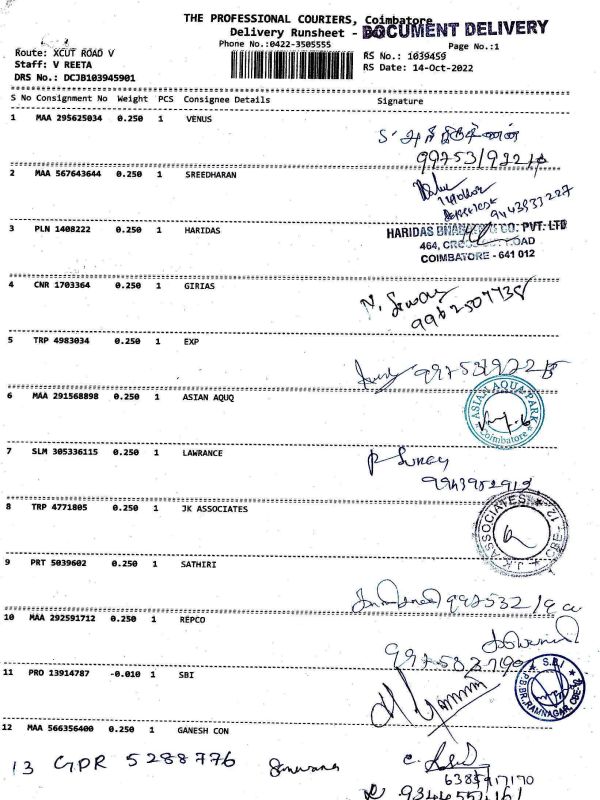 THE PROFESSIONAL COURIERS, Coimbatore
Delivery Runsheet - DOCUMENT DELIVERY
Phone No.:0422-3505555
Page No.:1
Route: XCUT ROAD V
RS No.: 1039459
Staff: V REETA
RS Date: 14-Oct-2022
DRS No.: DCJB103945901
S No Consignment No Weight PCS Consignee Details Signature
1 MAA 295625034 0.250 1 VENUS
2 MAA 567643644 0.250 1 SREEDHARAN
9443933227
3 PLN 1408222 0.250 1 HARIDAS
HARIDAS CO. PVT. LTD
464, ROAD
COIMBATORE - 641 012
4 CNR 1703364 0.250 1 GIRIAS
9962507738
5 TRP 4983034 0.250 1 EXP
6 MAA 291568898 0.250 1 ASIAN AQUQ
ASIAN AQUA PARK
Coimbatore
7 SLM 305336115 0.250 1 LAWRANCE
8 TRP 4771805 0.250 1 JK ASSOCIATES
J.K. ASSOCIATES CBE-12
9 PRT 5039602 0.250 1 SATHIRI
10 MAA 292591712 0.250 1 REPCO
11 PRO 13914787 -0.010 1 SBI
S.B.I P.B.BR.RAMNAGAR, CBE
12 MAA 566356400 0.250 1 GANESH CON
13 GPR 5288776
6385917170